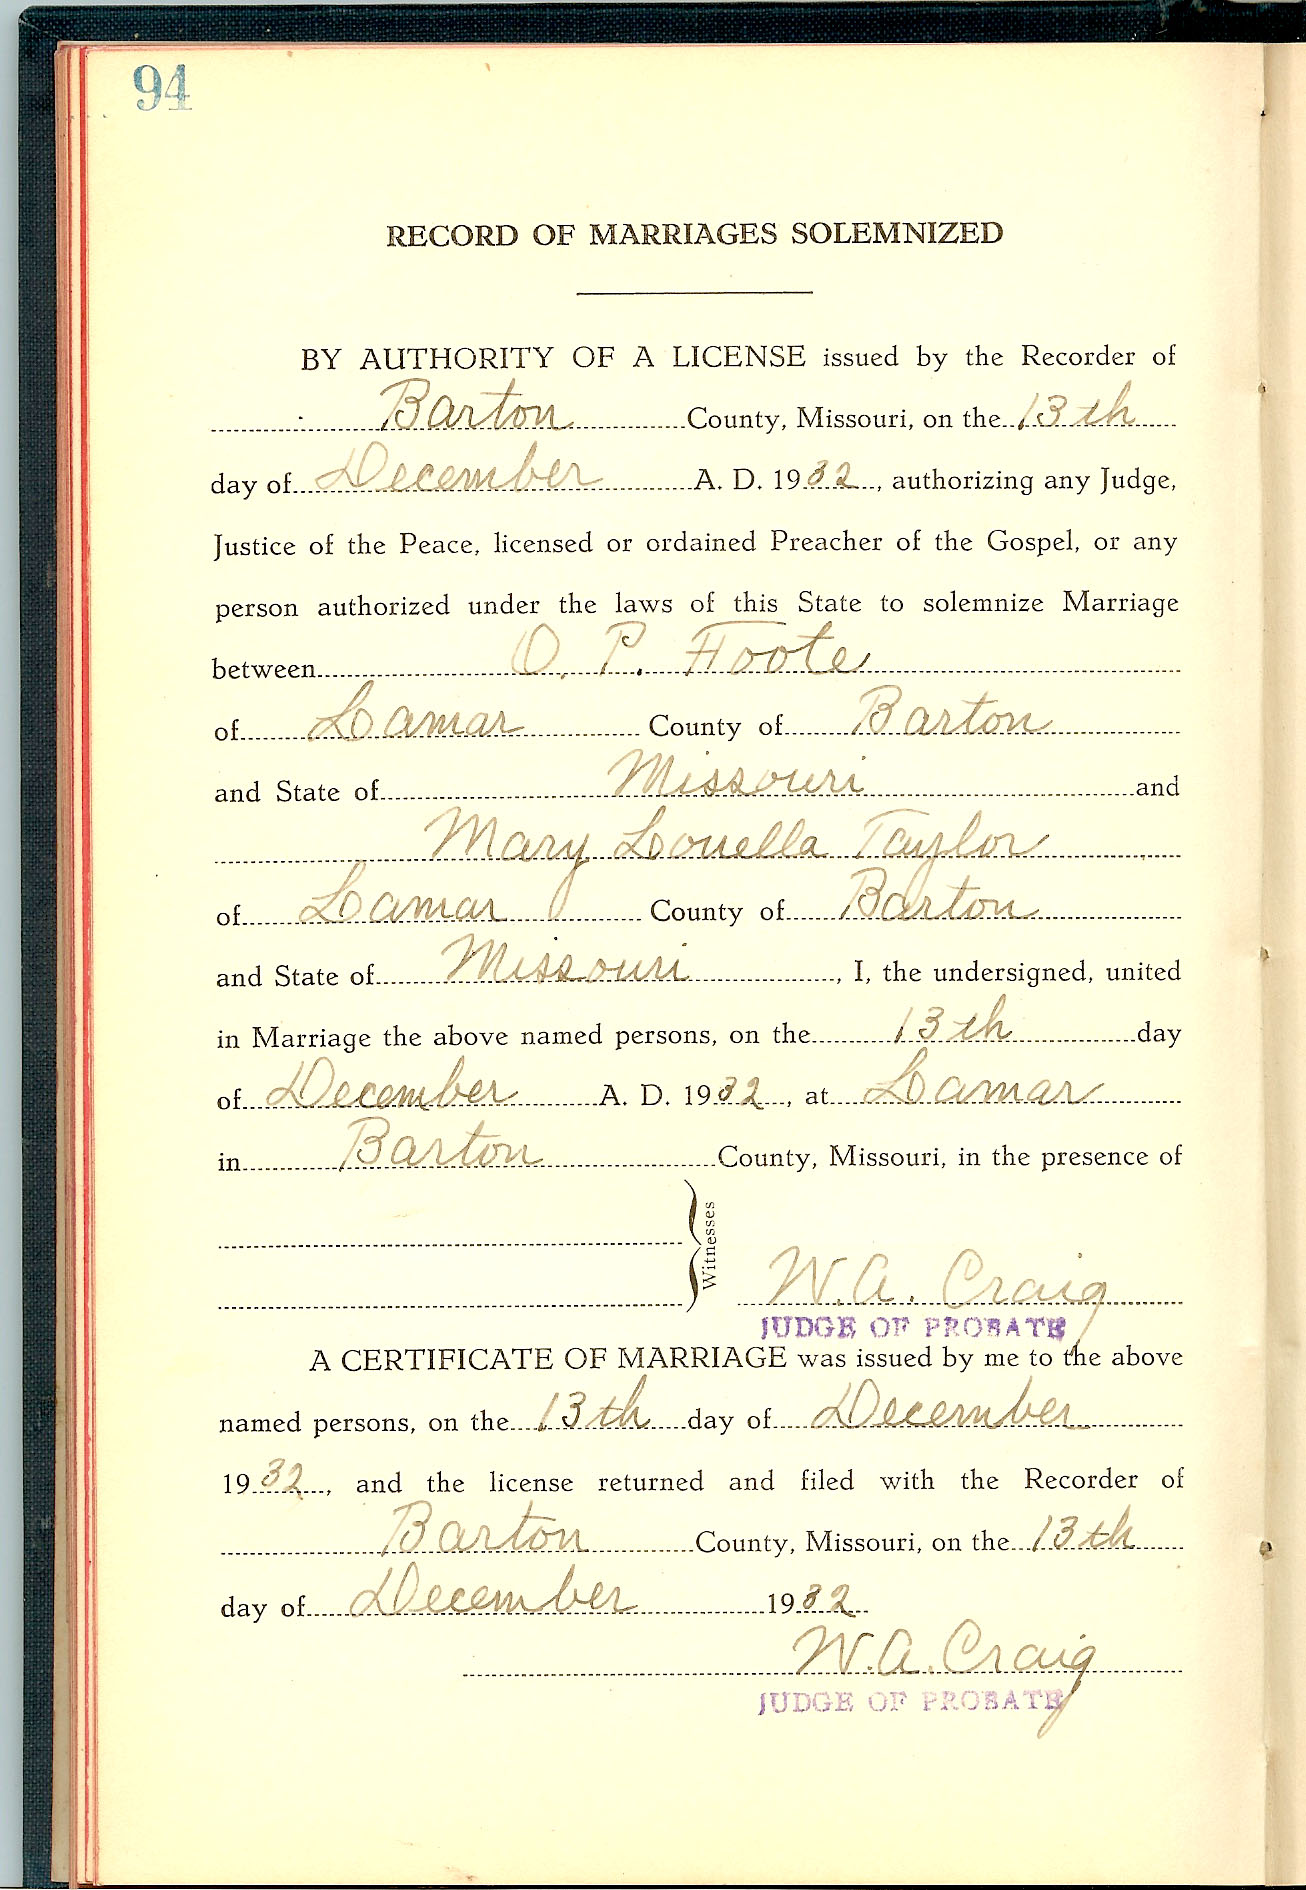 94
RECORD OF MARRIAGES SOLEMNIZED
BY AUTHORITY OF A LICENSE issued by the Recorder of
Barton County, Missouri, on the 13th
day of December A. D. 1932, authorizing any Judge,
Justice of the Peace, licensed or ordained Preacher of the Gospel, or any
person authorized under the laws of this State to solemnize Marriage
between O. P. Foote
of Lamar County of Barton
and State of Missouri and
Mary Louella Taylor
of Lamar County of Barton
and State of Missouri, I, the undersigned, united
in Marriage the above named persons, on the 13th day
of December A. D. 1932, at Lamar
in Barton County, Missouri, in the presence of
Witnesses
W. A. Craig
JUDGE OF PROBATE
A CERTIFICATE OF MARRIAGE was issued by me to the above
named persons, on the 13th day of December
1932, and the license returned and filed with the Recorder of
Barton County, Missouri, on the 13th
day of December 1932
W. A. Craig
JUDGE OF PROBATE